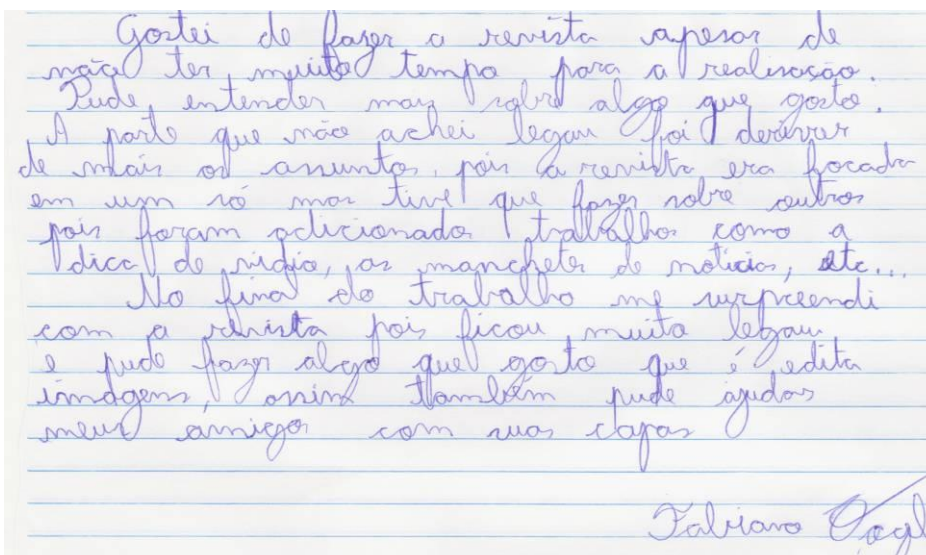 Gostei de fazer a revista apesar de
não ter muito tempo para a realização.
Pude entender mais sobre algo que gosto.
A parte que não achei legau foi derivar
de mais os assuntos, pois a revista era focada
em um só mas tive que fazer sobre outros
pois foram adicionados trabalhos como a
dica de mídia, as manchetes de noticias, etc...
No final do trabalho me surpreendi
com a revista pois ficou muito legau
e pude fazer algo que gosto que é edita
imagens, assim também pude ajudar
meus amigos com suas capas
Fabiano Vogl